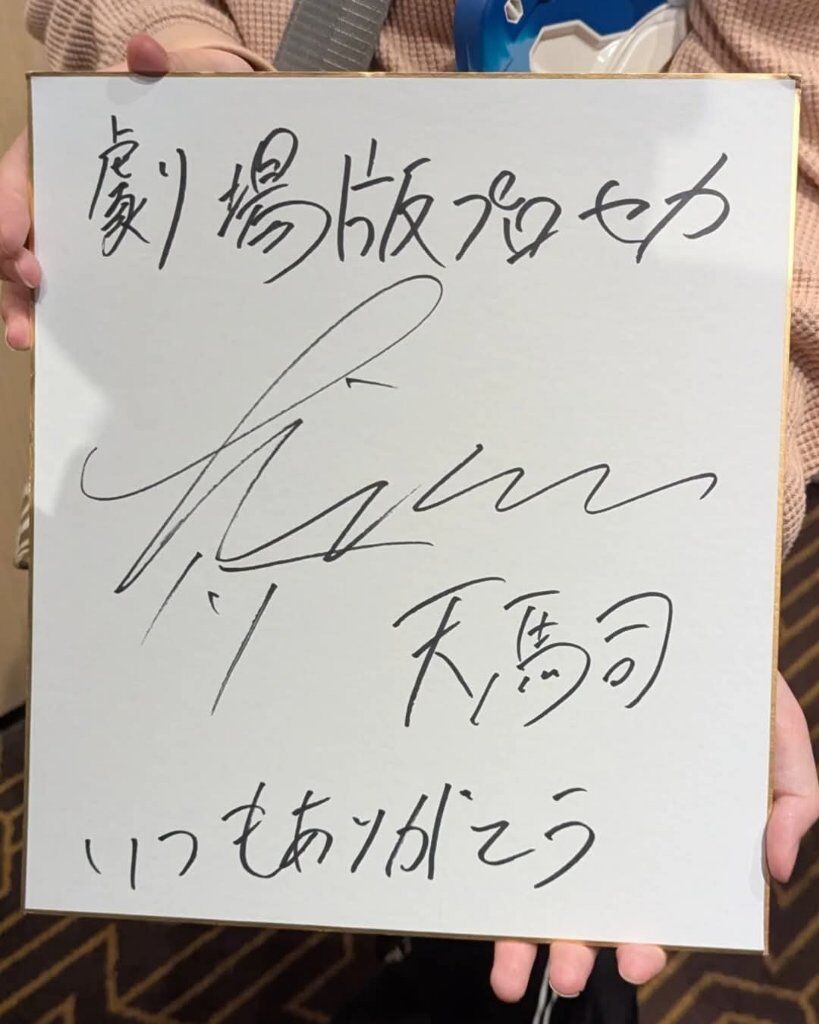 劇場版プロセカ
天馬司
いつもありがとう